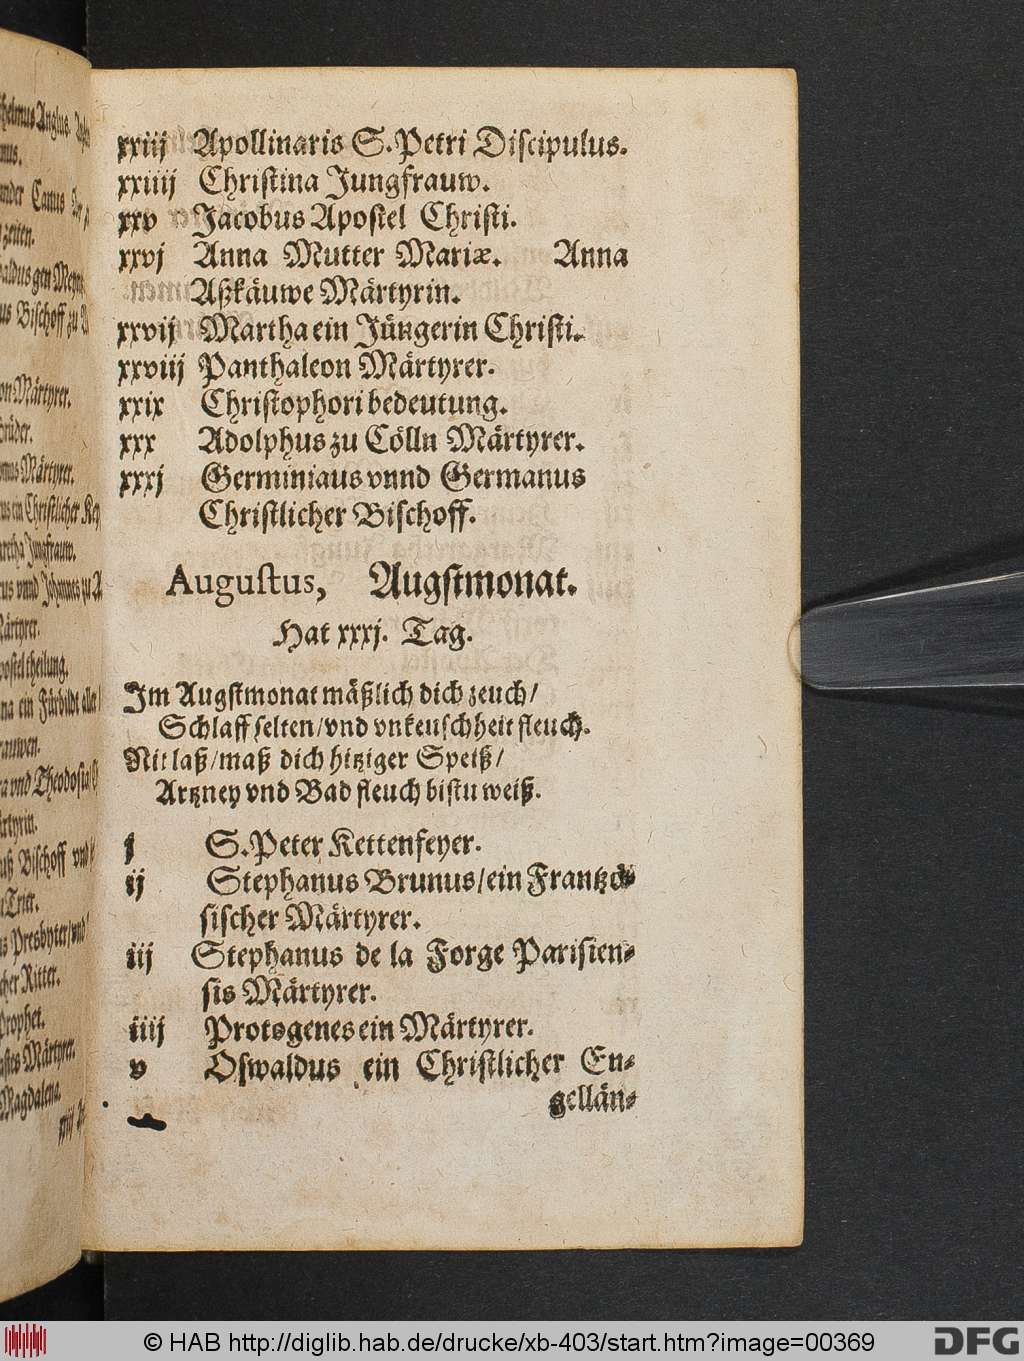 xxiij Apollinaris S. Petri Discipulus.
xxiiij Christina Jungfrauw.
xxv Jacobus Apostel Christi.
xxvj Anna Mutter Mariæ. Anna
Aßkäuwe Märtyrin.
xxvij Martha ein Jüngerin Christi.
xxviij Panthaleon Märtyrer.
xxix Christophori bedeutung.
xxx Adolphus zu Cölln Märtyrer.
xxxj Germiniaus vnnd Germanus
Christlicher Bischoff.
Augustus, Augstmonat.
Hat xxxj. Tag.
Im Augstmonat mäßlich dich zeuch/
Schlaff selten/vnd vnkeuschheit fleuch.
Nit laß/maß dich hitziger Speiß/
Artzney vnd Bad fleuch bistu weiß.
j S. Peter Kettenfeyer.
ij Stephanus Brunus/ein Frantzö-
sischer Märtyrer.
iij Stephanus de la Forge Parisien-
sis Märtyrer.
iiij Protogenes ein Märtyrer.
v Oswaldus ein Christlicher En-
gellän-
© HAB http://diglib.hab.de/drucke/xb-403/start.htm?image=00369
DFG